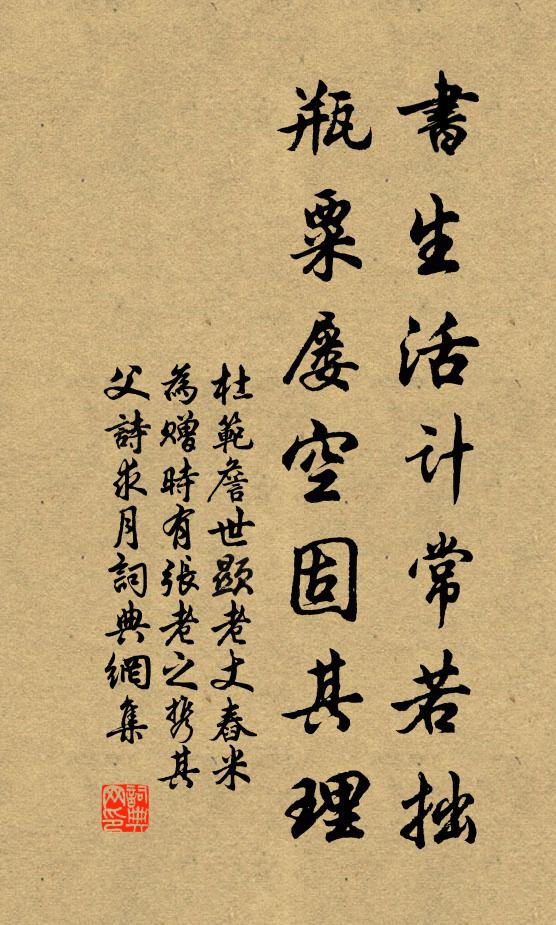 書生活計常若拙
瓶粟屡空固其理
杜範詹世顯老丈舂米
為贈時有張老之携其
父詩求月詞典網集
詞典
网印